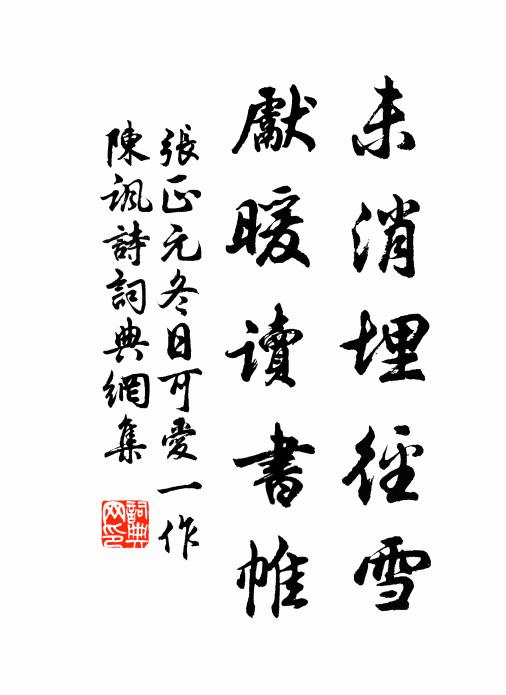 未消埋徑雪
獻暖讀書帷
張正元冬日可愛一作
陳諷詩詞典網集
詞典网印